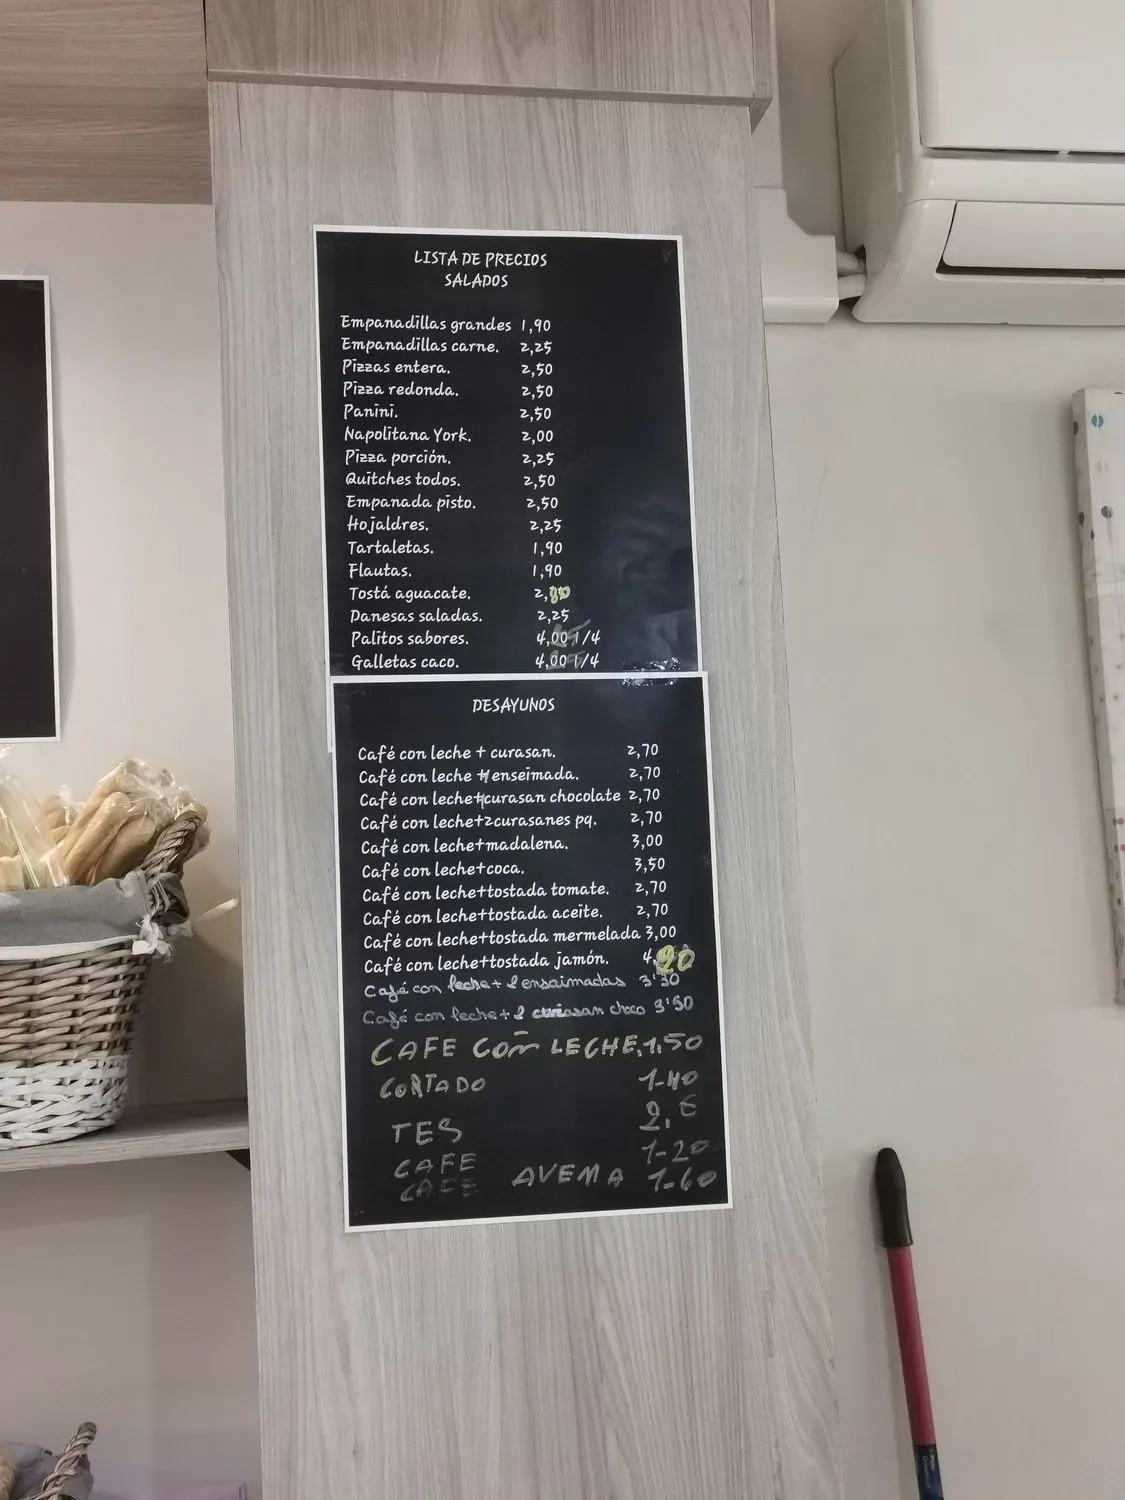 LISTA DE PRECIOS
SALADOS
Empanadillas grandes 1,90
Empanadillas carne. 2,25
Pizzas entera. 2,50
Pizza redonda. 2,50
Panini. 2,50
Napolitana York. 2,00
Pizza porción. 2,25
Quitches todos. 2,50
Empanada pisto. 2,50
Hojaldres. 2,25
Tartaletas. 1,90
Flautas. 1,90
Tostá aguacate. 2,80
Danesas saladas. 2,25
Palitos sabores. 4,00 1/4
Galletas caco. 4,00 1/4
DESAYUNOS
Café con leche + curasan. 2,70
Café con leche + enseimada. 2,70
Café con leche+curasan chocolate 2,70
Café con leche+2curasanes pq. 2,70
Café con leche+madalena. 3,00
Café con leche+coca. 3,50
Café con leche+tostada tomate. 2,70
Café con leche+tostada aceite. 2,70
Café con leche+tostada mermelada 3,00
Café con leche+tostada jamón. 4,20
Café con leche + 2 ensaimadas 3'30
Café con leche + 2 curasan choco 3'50
CAFE COM LECHE. 1,50
CORTADO 1-40
TES 2,€
CAFE 1-20
CAFE AVENA 1-60